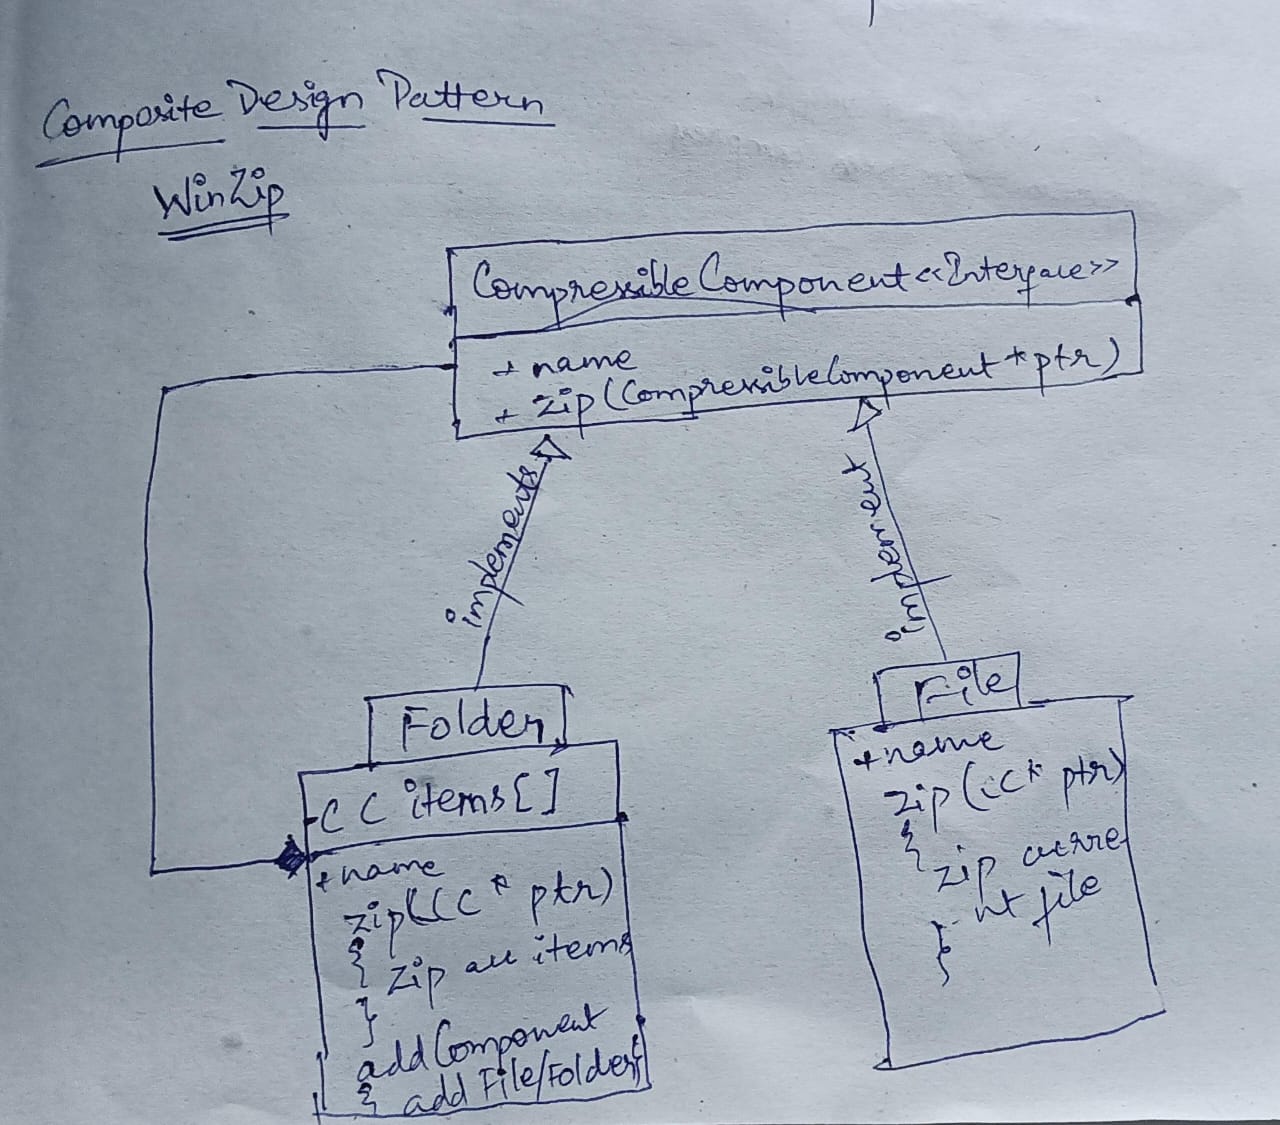 Composite Design Pattern
WinZip
Compressible Component <<Interface>>
+ name
+ zip (Compressible Component * ptr)
implements
implement
Folder
- C C items [ ]
+ name
zip (CC * ptr)
{
Zip all items
}
add Component
{ add File/Folder}
File
+ name
zip (CC* ptr)
{
zip curre
nt file
}